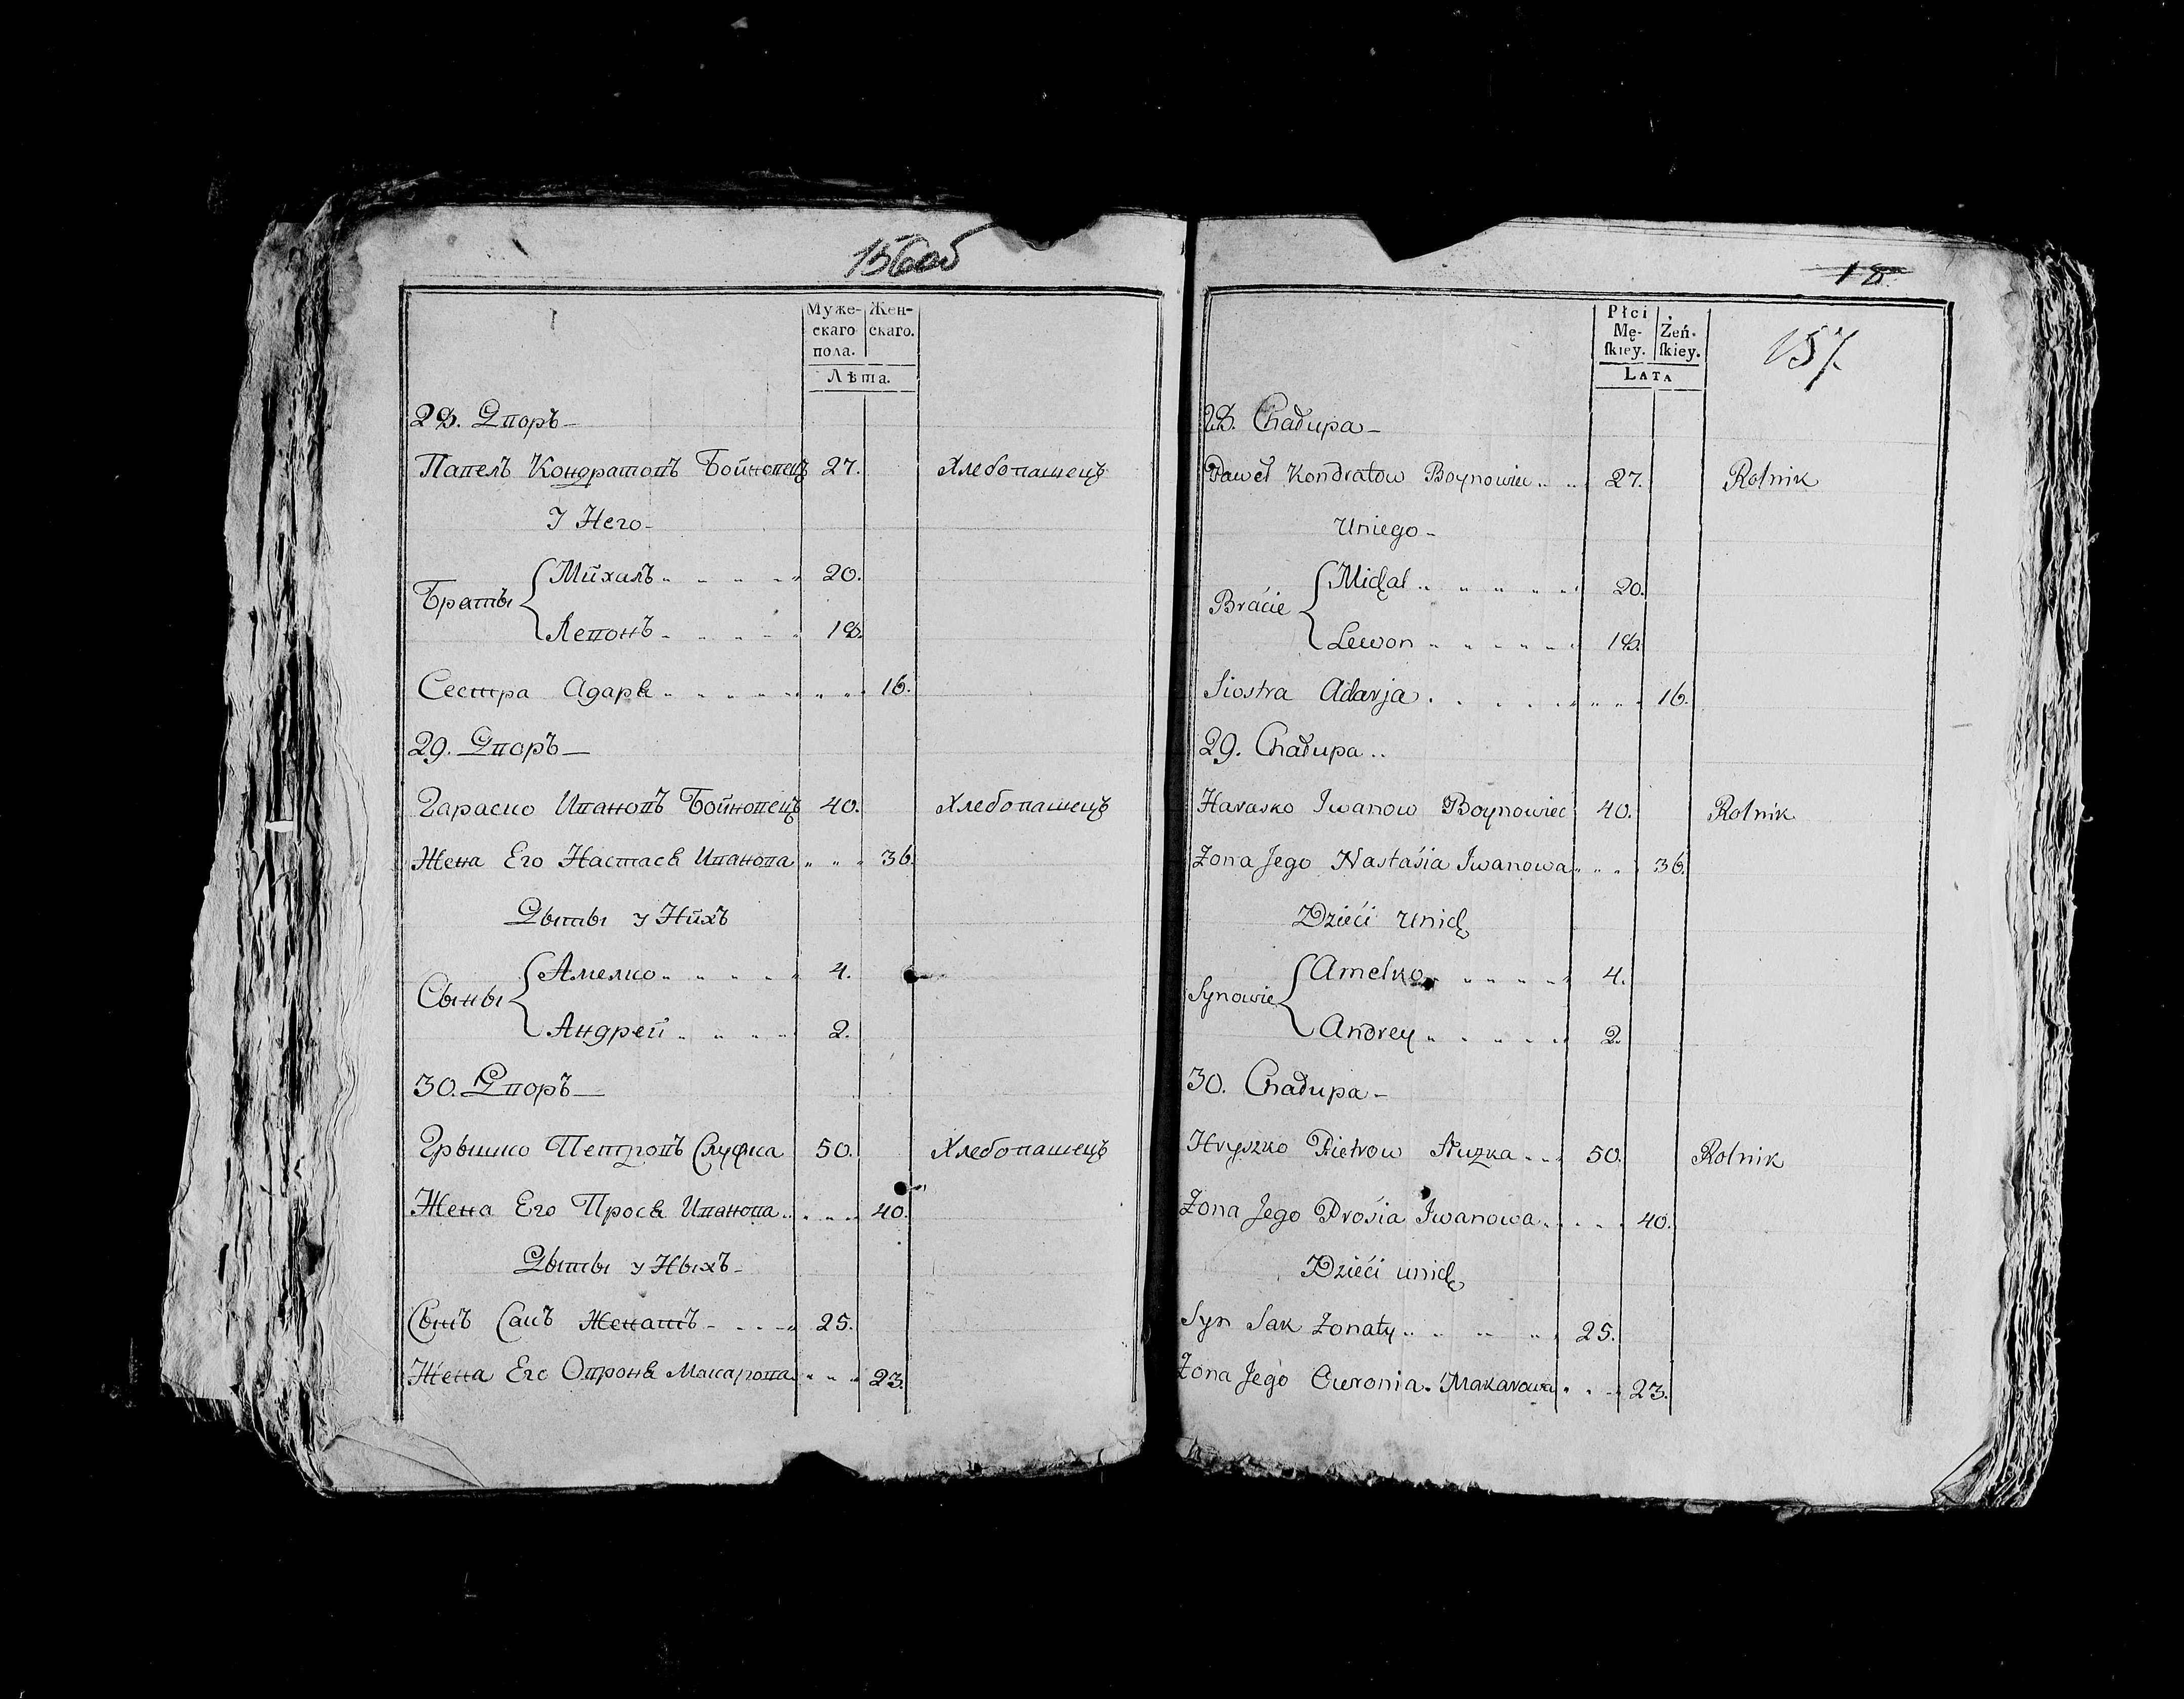 156об
Муже- Жен-
скаго скаго.
пола.
Лѣта.
28. Дворъ
Павелъ Кондратовъ Бойновецъ 27. Хлебопашецъ
У Него
Браты { Михалъ 20.
Левонъ 18.
Сестра Адаря 16.
29. Дворъ
Гараско Ивановъ Бойновецъ 40. Хлебопашецъ
Жена Его Настася Иванова 36.
Дыты у Нихъ
Сыны { Амелко 4.
Андрей 2.
30. Дворъ
Грышко Петровъ 50. Хлебопашецъ
Жена Его Прося Иванова 40.
Дыты у Ныхъ
Сынъ Сакъ Женатъ 25.
Жена Его Овроня Макарова 23.
18
157.
Płci
Mę- Żeń-
ſkiey. ſkiey.
LATA
28. Chałupa
Paweł Kondratow Boynowiec 27. Rolnik
Uniego
Bracie { Michał 20.
Lewon 18.
Siostra Adarja 16.
29. Chałupa
Harasko Iwanow Boynowiec 40. Rolnik
Żona Jego Nastaśia Iwanowa 36.
Dzieći Unich
Synowie { Amelko 4.
Andrey 2.
30. Chałupa
Hryszko Pietrow 50. Rolnik
Żona Jego Prośia Iwanowa 40.
Dzieći unich
Syn Sak Żonaty 25.
Żona Jego Owronia Makarowa 23.